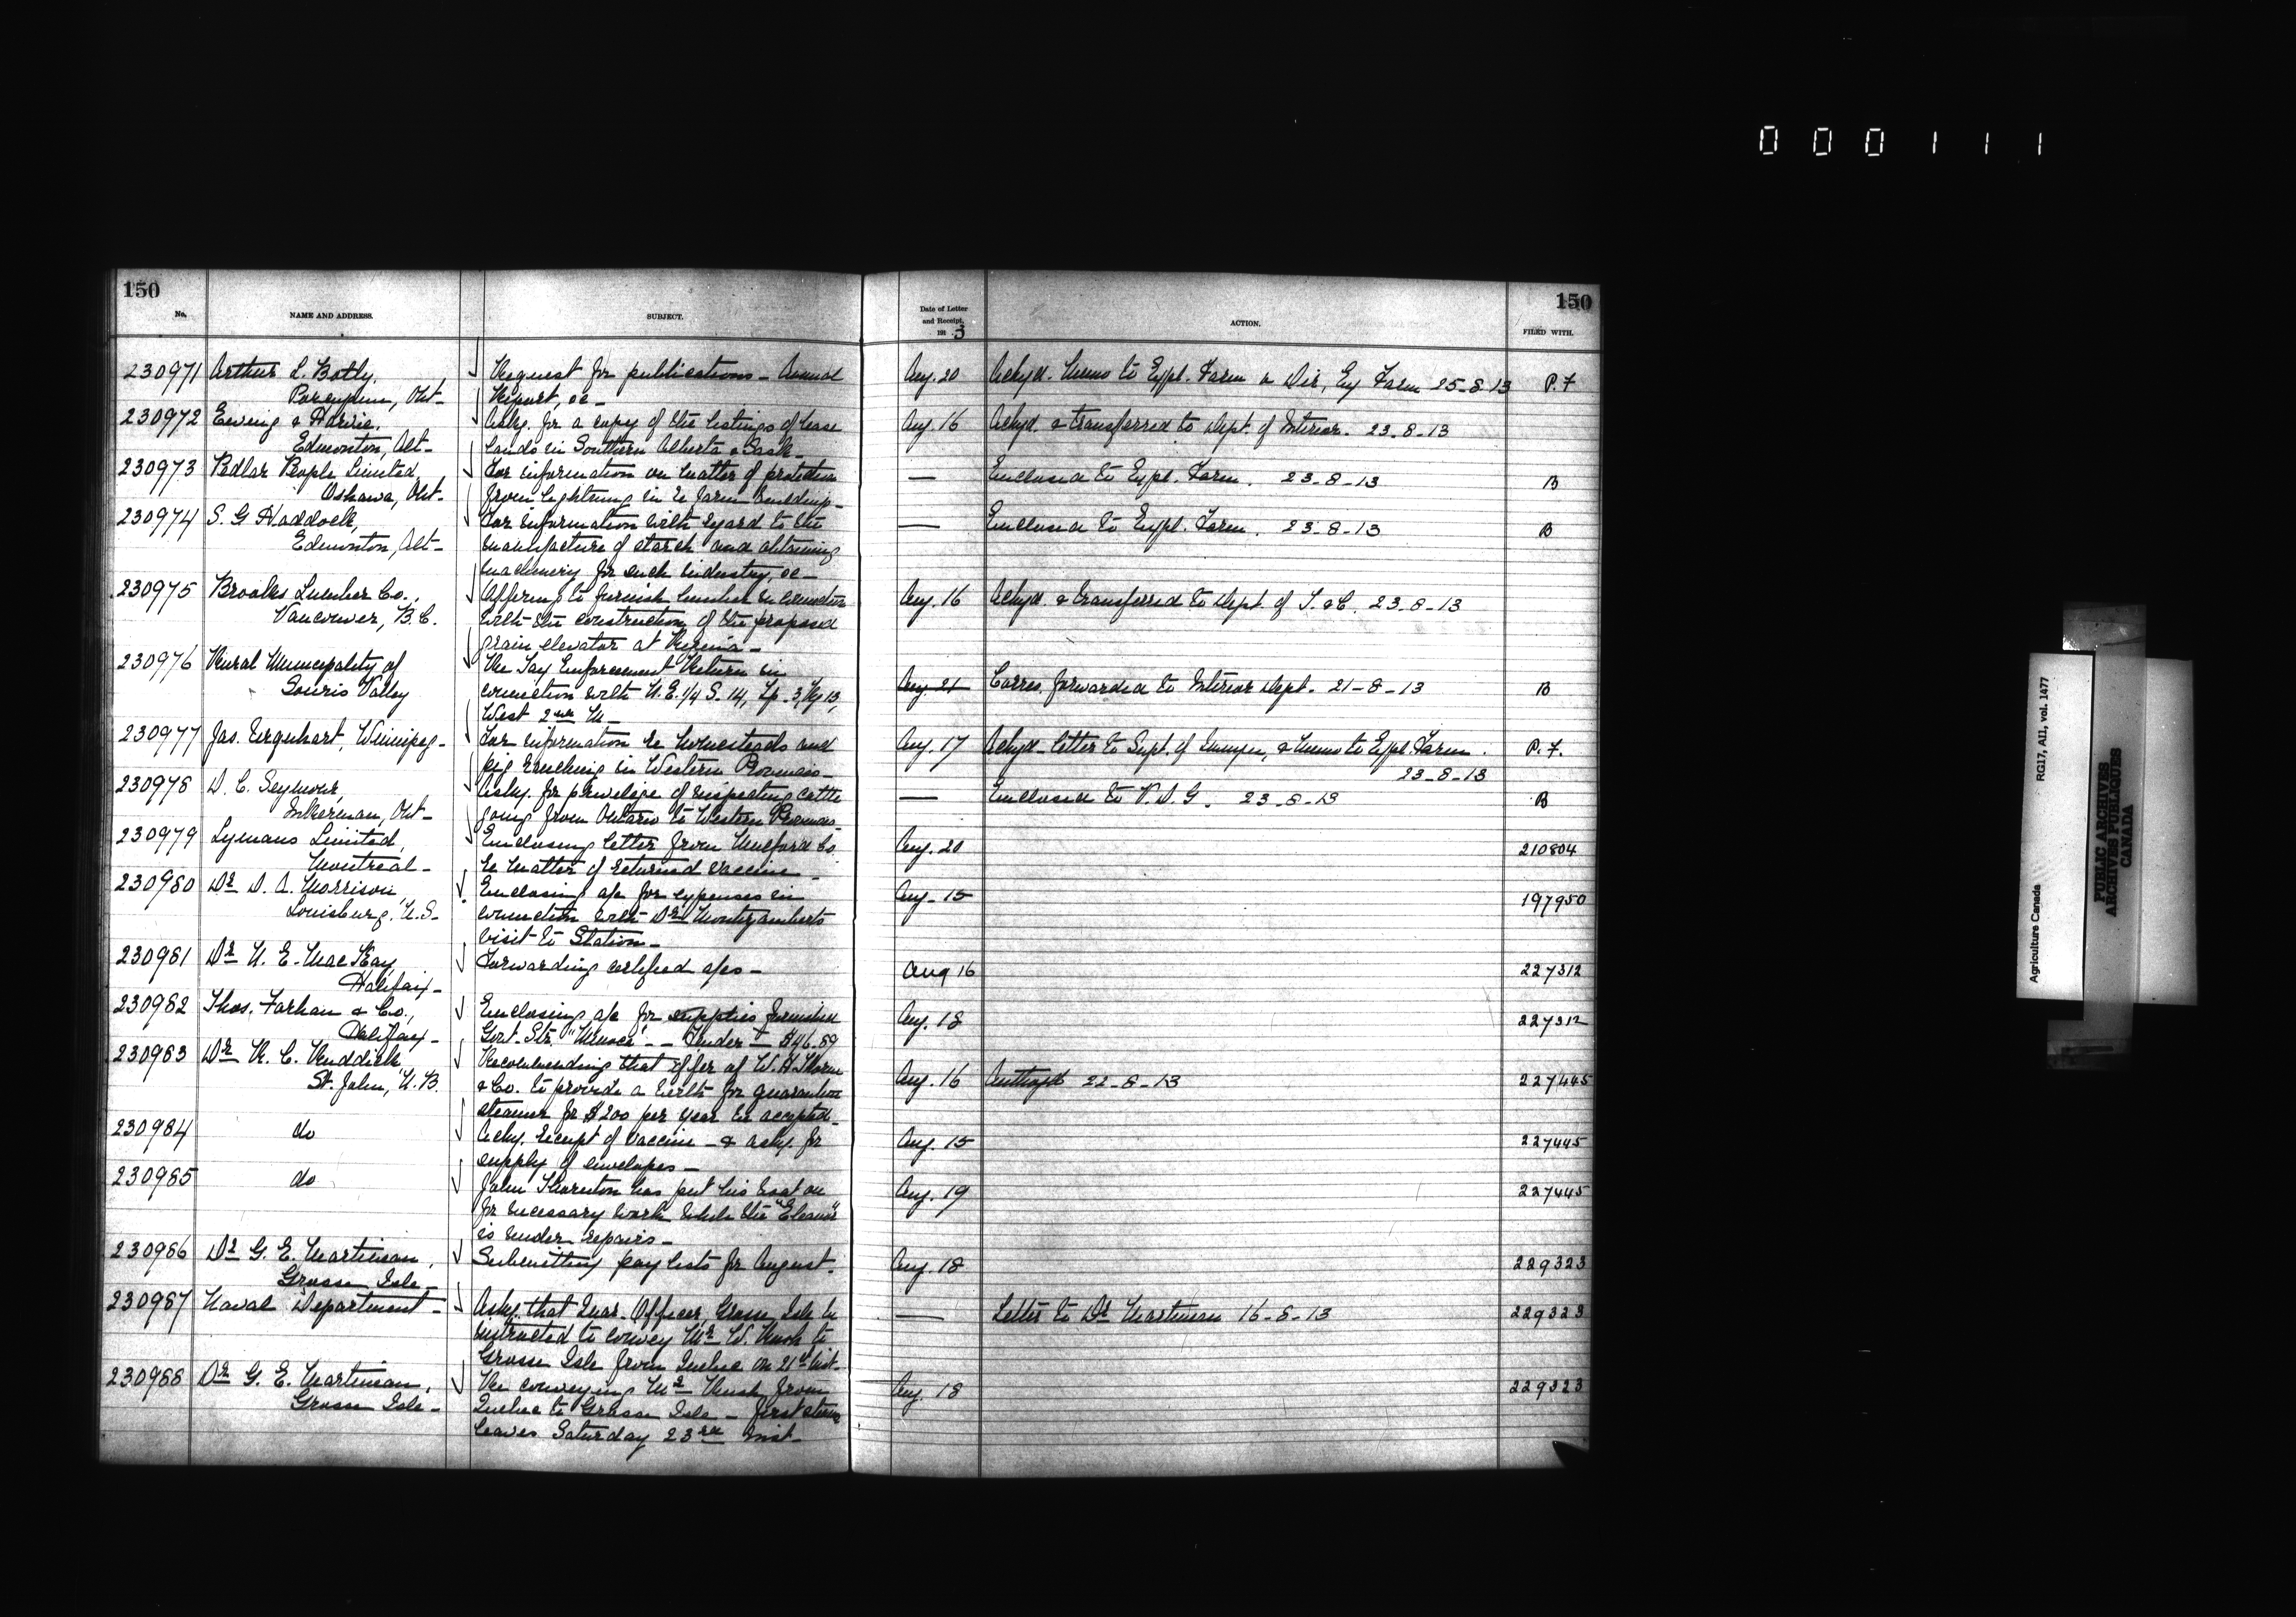 000111
150
No.
NAME AND ADDRESS.
SUBJECT.
Date of Letter
and Receipt,
191 3
ACTION.
FILED WITH.
150
230971 Arthur L. Botly, Request for publications - Annual Aug. 20 Ackgd. Memo to Expl. Farm & Dir, Ex Farm 25-8-13 P.F
Porcupine, Ont- Report, &c-
230972 Ewing & Harvie, Askg. for a copy of the listings of lease Aug. 16 Ackgd. & transferred to Dept. of Interior. 23-8-13
Edmonton, Alt- lands in Southern Alberta & Sask-
230973 Pedlar People Limited, For information on matter of protection — Enclosed to Expl. Farm. 23-8-13 B
Oshawa, Ont- from lightning in re farm buildings-
230974 S. G Haddock, For information with regard to the — Enclosed to Expl. Farm. 23-8-13 B
Edmonton, Alt- manufacture of starch and obtaining
machinery for such industry, &c-
230975 Brooks Lumber Co., Offering to furnish lumber in connection Aug. 16 Ackgd. & transferred to Dept. of T. & C. 23-8-13
Vancouver, B.C. with the construction of the proposed
grain elevator at Regina-
230976 Rural Municipality of Re Tax Enforcement Return in
Souris Valley connection with N.E. 1/4 S. 14, Tp. 3, Rg 13, Aug. 21 Corres. forwarded to Interior Dept. 21-8-13 B
West 2nd M-
230977 Jas. Urquhart, Winnipeg- For information re homesteads and Aug. 17 Ackgd- letter to Supt. of Immgn, & Memo to Expl. Farm. P.F.
ranching in Western Provinces- 23-8-13
230978 D. C. Seymour, Askg. for privilege of inspecting cattle — Enclosed to V.D.G. 23-8-13 B
Inkerman, Ont- going from Ontario to Western Provinces
230979 Lymans Limited, Enclosing letter from Mulford Co Aug. 20 210804
Montreal- re matter of returned vaccine-
230980 Dr D. A. Morrison, Enclosing a/c for expenses in Aug. 15 197950
Louisburg, N.S- connection with Dr Montizamberts
visit to Station-
230981 Dr N. E. MacKay, Forwarding certified a/cs- Aug 16 227312
Halifax-
230982 Thos. Farhan & Co., Enclosing a/c for supplies furnished Aug. 18 227312
Halifax- Govt. Str. - Tender - $46.89
230983 Dr R. C. Ruddick, Recommending that offer of W. H. Thorne
St. John, N.B. & Co. to provide a berth for quarantine Aug. 16 Authogd 22-8-13 227445
steamer for $200 per year be accepted-
230984 do Ackg. receipt of vaccine - & askg. for Aug. 15 227445
supply of envelopes-
230985 do John Thornton has put his boat on Aug. 19 227445
for necessary work while the "Eleanor"
is under repairs-
230986 Dr G. E. Martineau, Submitting pay lists for August. Aug. 18 229323
Grosse Isle-
230987 Naval Department- Askg. that Quar. Officer, Grosse Isle be — Letter to Dr Martineau 16-8-13 229323
instructed to convey Mr W. Rush to
Grosse Isle from Quebec on 21st inst-
230988 Dr G. E. Martineau, Re conveying Mr Rush from Aug. 18 229323
Grosse Isle- Quebec to Grosse Isle - first steamer
leaves Saturday 23rd inst-
Agriculture Canada RG17, AII, vol. 1477
PUBLIC ARCHIVES
ARCHIVES PUBLIQUES
CANADA